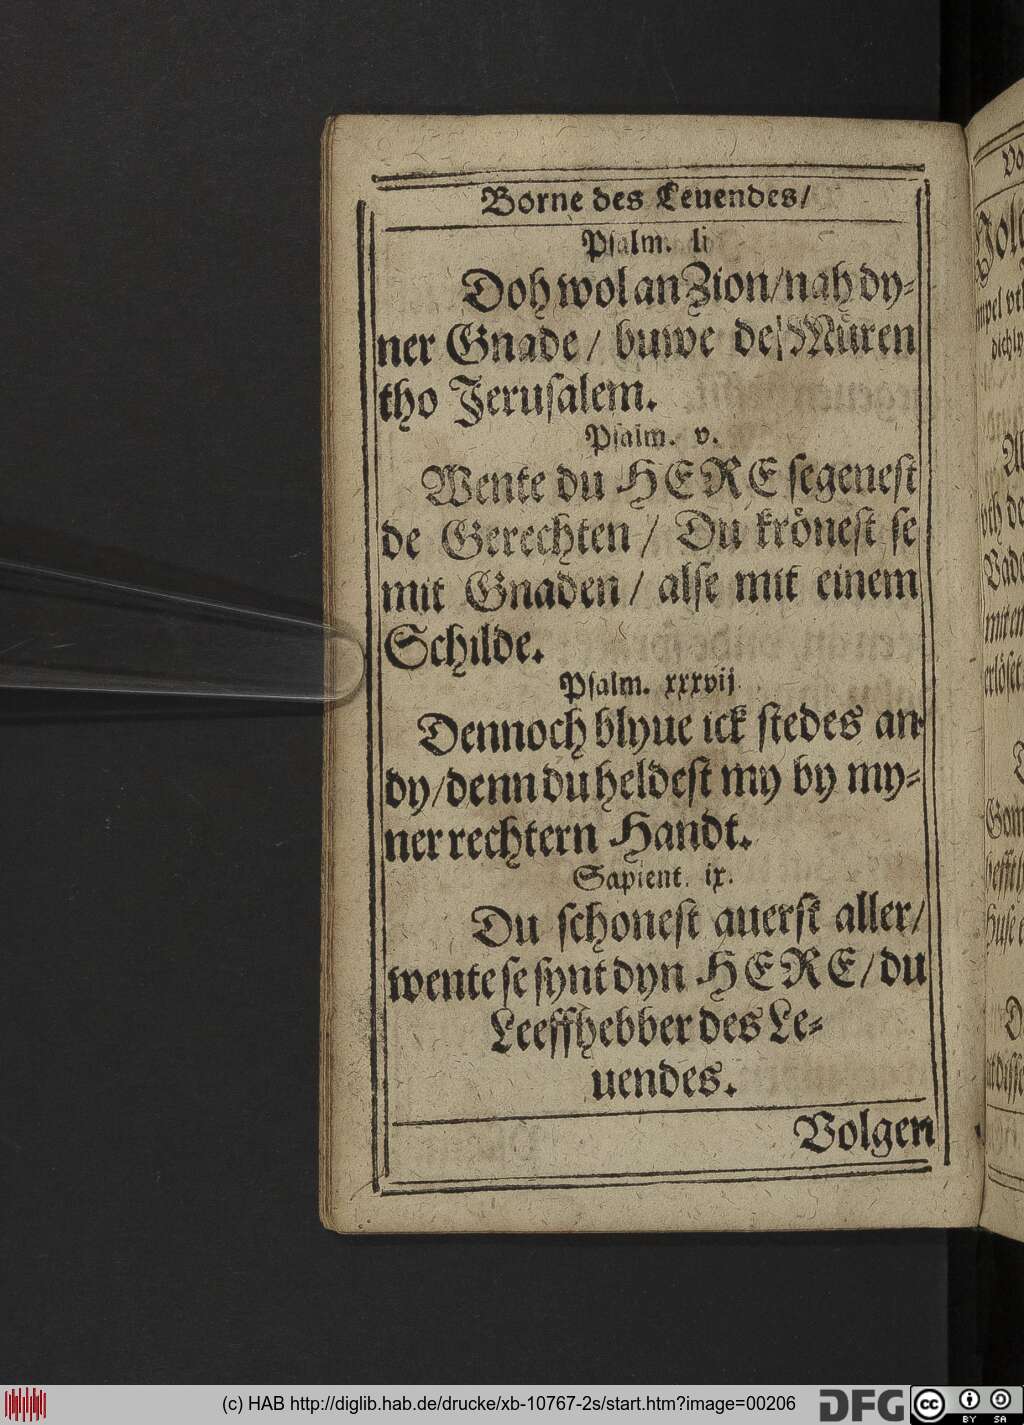 Borne des Leuendes/
Psalm. li
Doh wol an Zion/ nah dy⸗
ner Gnade / buwe de Müren
tho Jerusalem.
Psalm. v.
Wente du HERE segenest
de Gerechten / Du krönest se
mit Gnaden / alse mit einem
Schilde.
Psalm. xxxvij
Dennoch blyue ick stedes an
dy/ denn du heldest my by my⸗
ner rechtern Handt.
Sapient. ix.
Du schonest auerst aller/
wente se synt dyn HERE/ du
Leeffhebber des Le⸗
uendes.
Volgen
(c) HAB http://diglib.hab.de/drucke/xb-10767-2s/start.htm?image=00206
DFG
cc BY SA